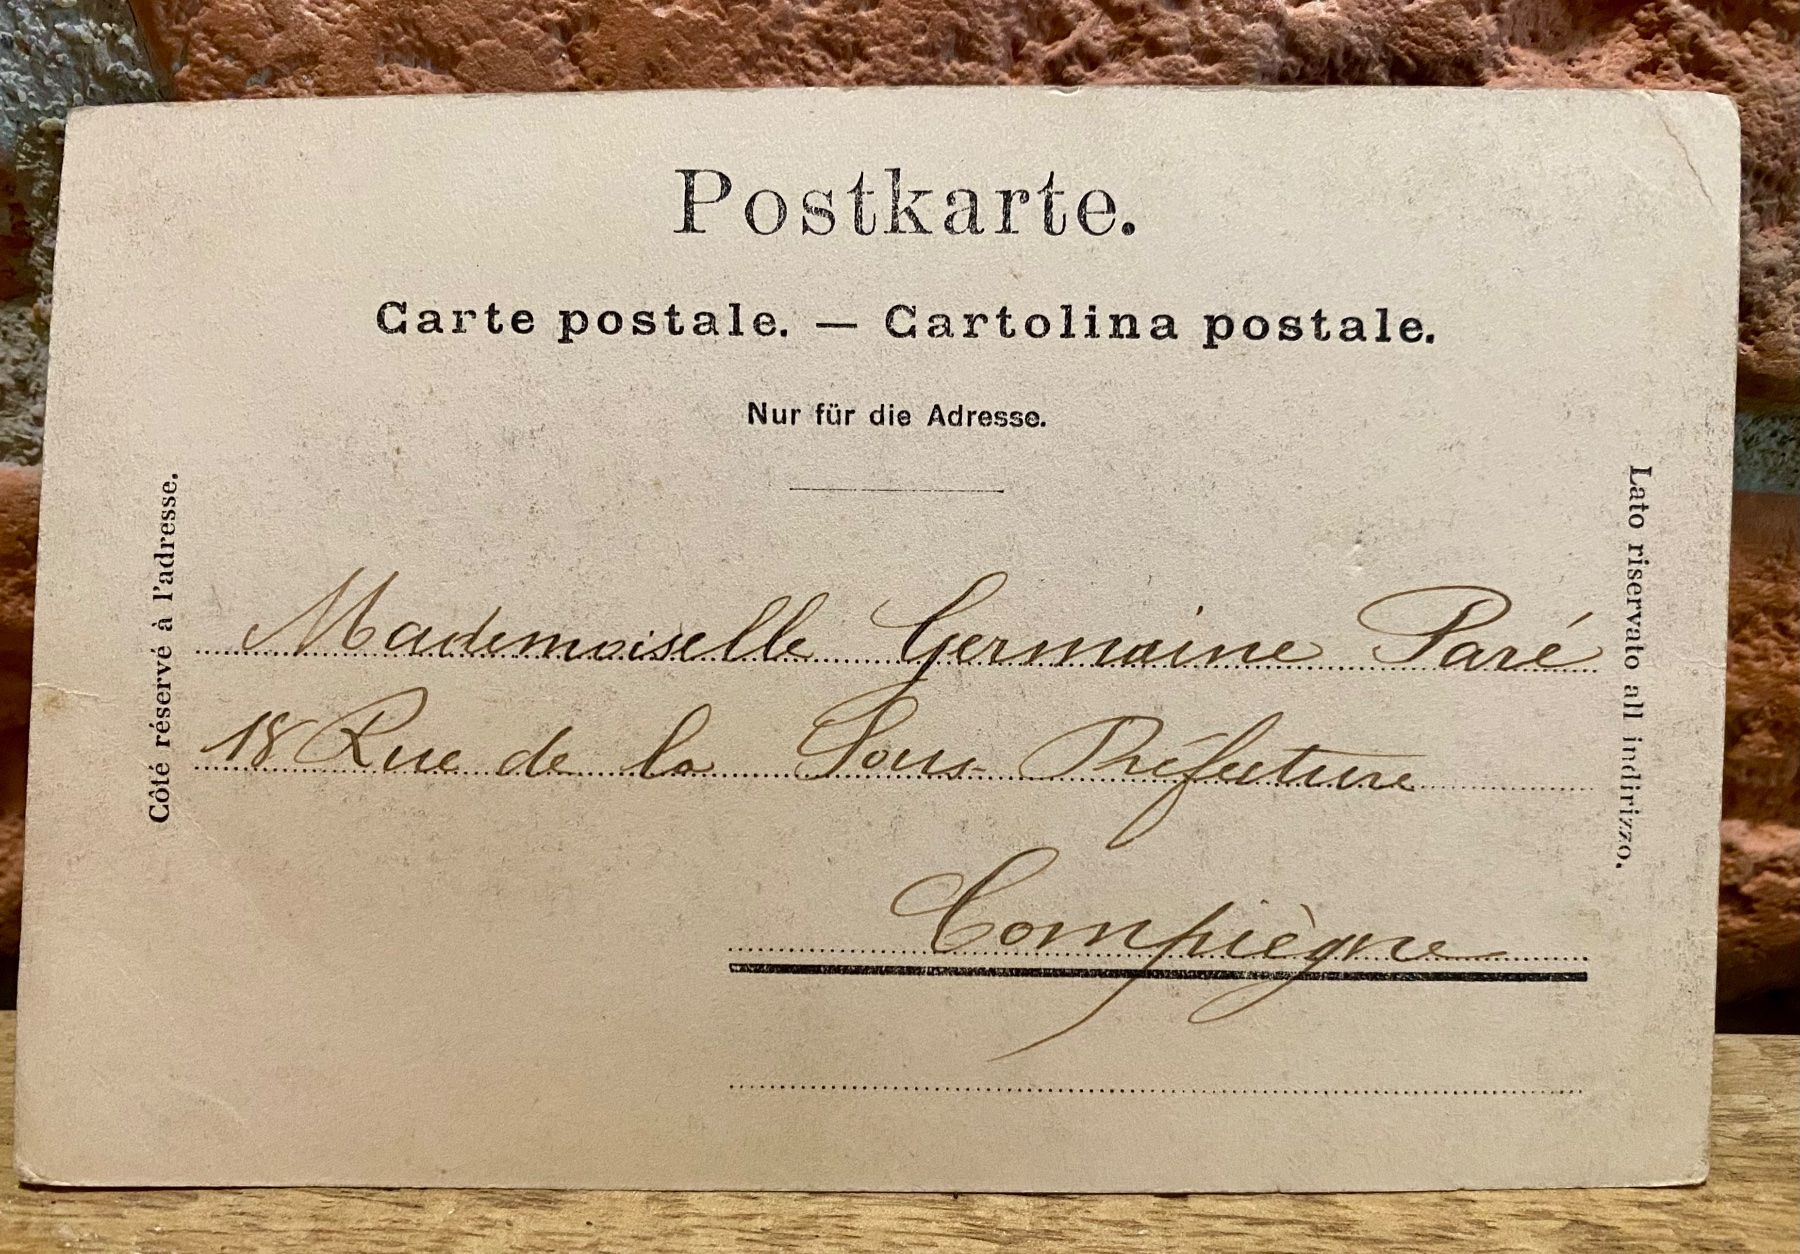 Postkarte.
Carte postale. — Cartolina postale.
Nur für die Adresse.
Côté réservé à l'adresse.
Mademoiselle Germaine Paré
18 Rue de la Sous-Préfecture
Compiègne
Lato riservato all indirizzo.